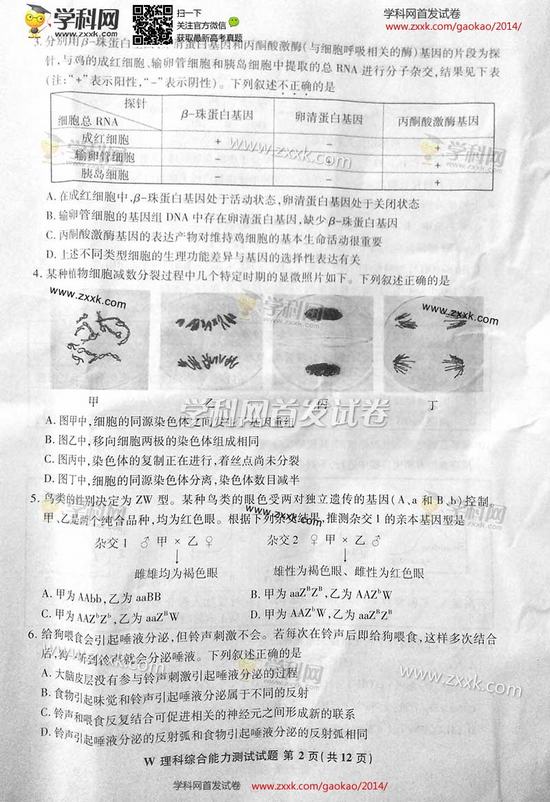 学科网
WWW.ZXXK.COM
扫一下
关注官方微信
获取最新高考真题
学科网首发试卷
www.zxxk.com/gaokao/2014/
3. 分别用β-珠蛋白 清蛋白基因和丙酮酸激酶(与细胞呼吸相关的酶)基因的片段为探
针,与鸡的成红细胞、输卵管细胞和胰岛细胞中提取的总 RNA 进行分子杂交,结果见下表
(注:“+”表示阳性,“-”表示阴性)。下列叙述不正确的是
探针
细胞总 RNA
β-珠蛋白基因 卵清蛋白基因 丙酮酸激酶基因
成红细胞 + - +
输卵管细胞 - +
胰岛细胞 - - +
A. 在成红细胞中,β-珠蛋白基因处于活动状态,卵清蛋白基因处于关闭状态
B. 输卵管细胞的基因组 DNA 中存在卵清蛋白基因,缺少β-珠蛋白基因
C. 丙酮酸激酶基因的表达产物对维持鸡细胞的基本生命活动很重要
D. 上述不同类型细胞的生理功能差异与基因的选择性表达有关
4. 某种植物细胞减数分裂过程中几个特定时期的显微照片如下。下列叙述正确的是
甲 乙 丙 丁
A. 图甲中,细胞的同源染色体之间发生了基因重组
B. 图乙中,移向细胞两极的染色体组成相同
C. 图丙中,染色体的复制正在进行,着丝点尚未分裂
D. 图丁中,细胞的同源染色体分离,染色体数目减半
5. 鸟类的性别决定为 ZW 型。某种鸟类的眼色受两对独立遗传的基因(A、a 和 B、b)控制。
甲、乙是两个纯合品种,均为红色眼。根据下列杂交结果,推测杂交 1 的亲本基因型是
杂交 1 ♂ 甲 × 乙 ♀ 杂交 2 ♀ 甲 × 乙 ♂
雌雄均为褐色眼 雄性为褐色眼、雌性为红色眼
A. 甲为 AAbb,乙为 aaBB B. 甲为 aaZᴮZᴮ,乙为 AAZᵇW
C. 甲为 AAZᵇZᵇ,乙为 aaZᴮW D. 甲为 AAZᵇW,乙为 aaZᴮZᴮ
6. 给狗喂食会引起唾液分泌,但铃声刺激不会。若每次在铃声后即给狗喂食,这样多次结合
后,狗一听到铃声就会分泌唾液。下列叙述正确的是
A. 大脑皮层没有参与铃声刺激引起唾液分泌的过程
B. 食物引起味觉和铃声引起唾液分泌属于不同的反射
C. 铃声和喂食反复结合可促进相关的神经元之间形成新的联系
D. 铃声引起唾液分泌的反射弧和食物引起唾液分泌的反射弧相同
W 理科综合能力测试试题 第 2 页(共 12 页)
学科网首发试卷 www.zxxk.com/gaokao/2014/